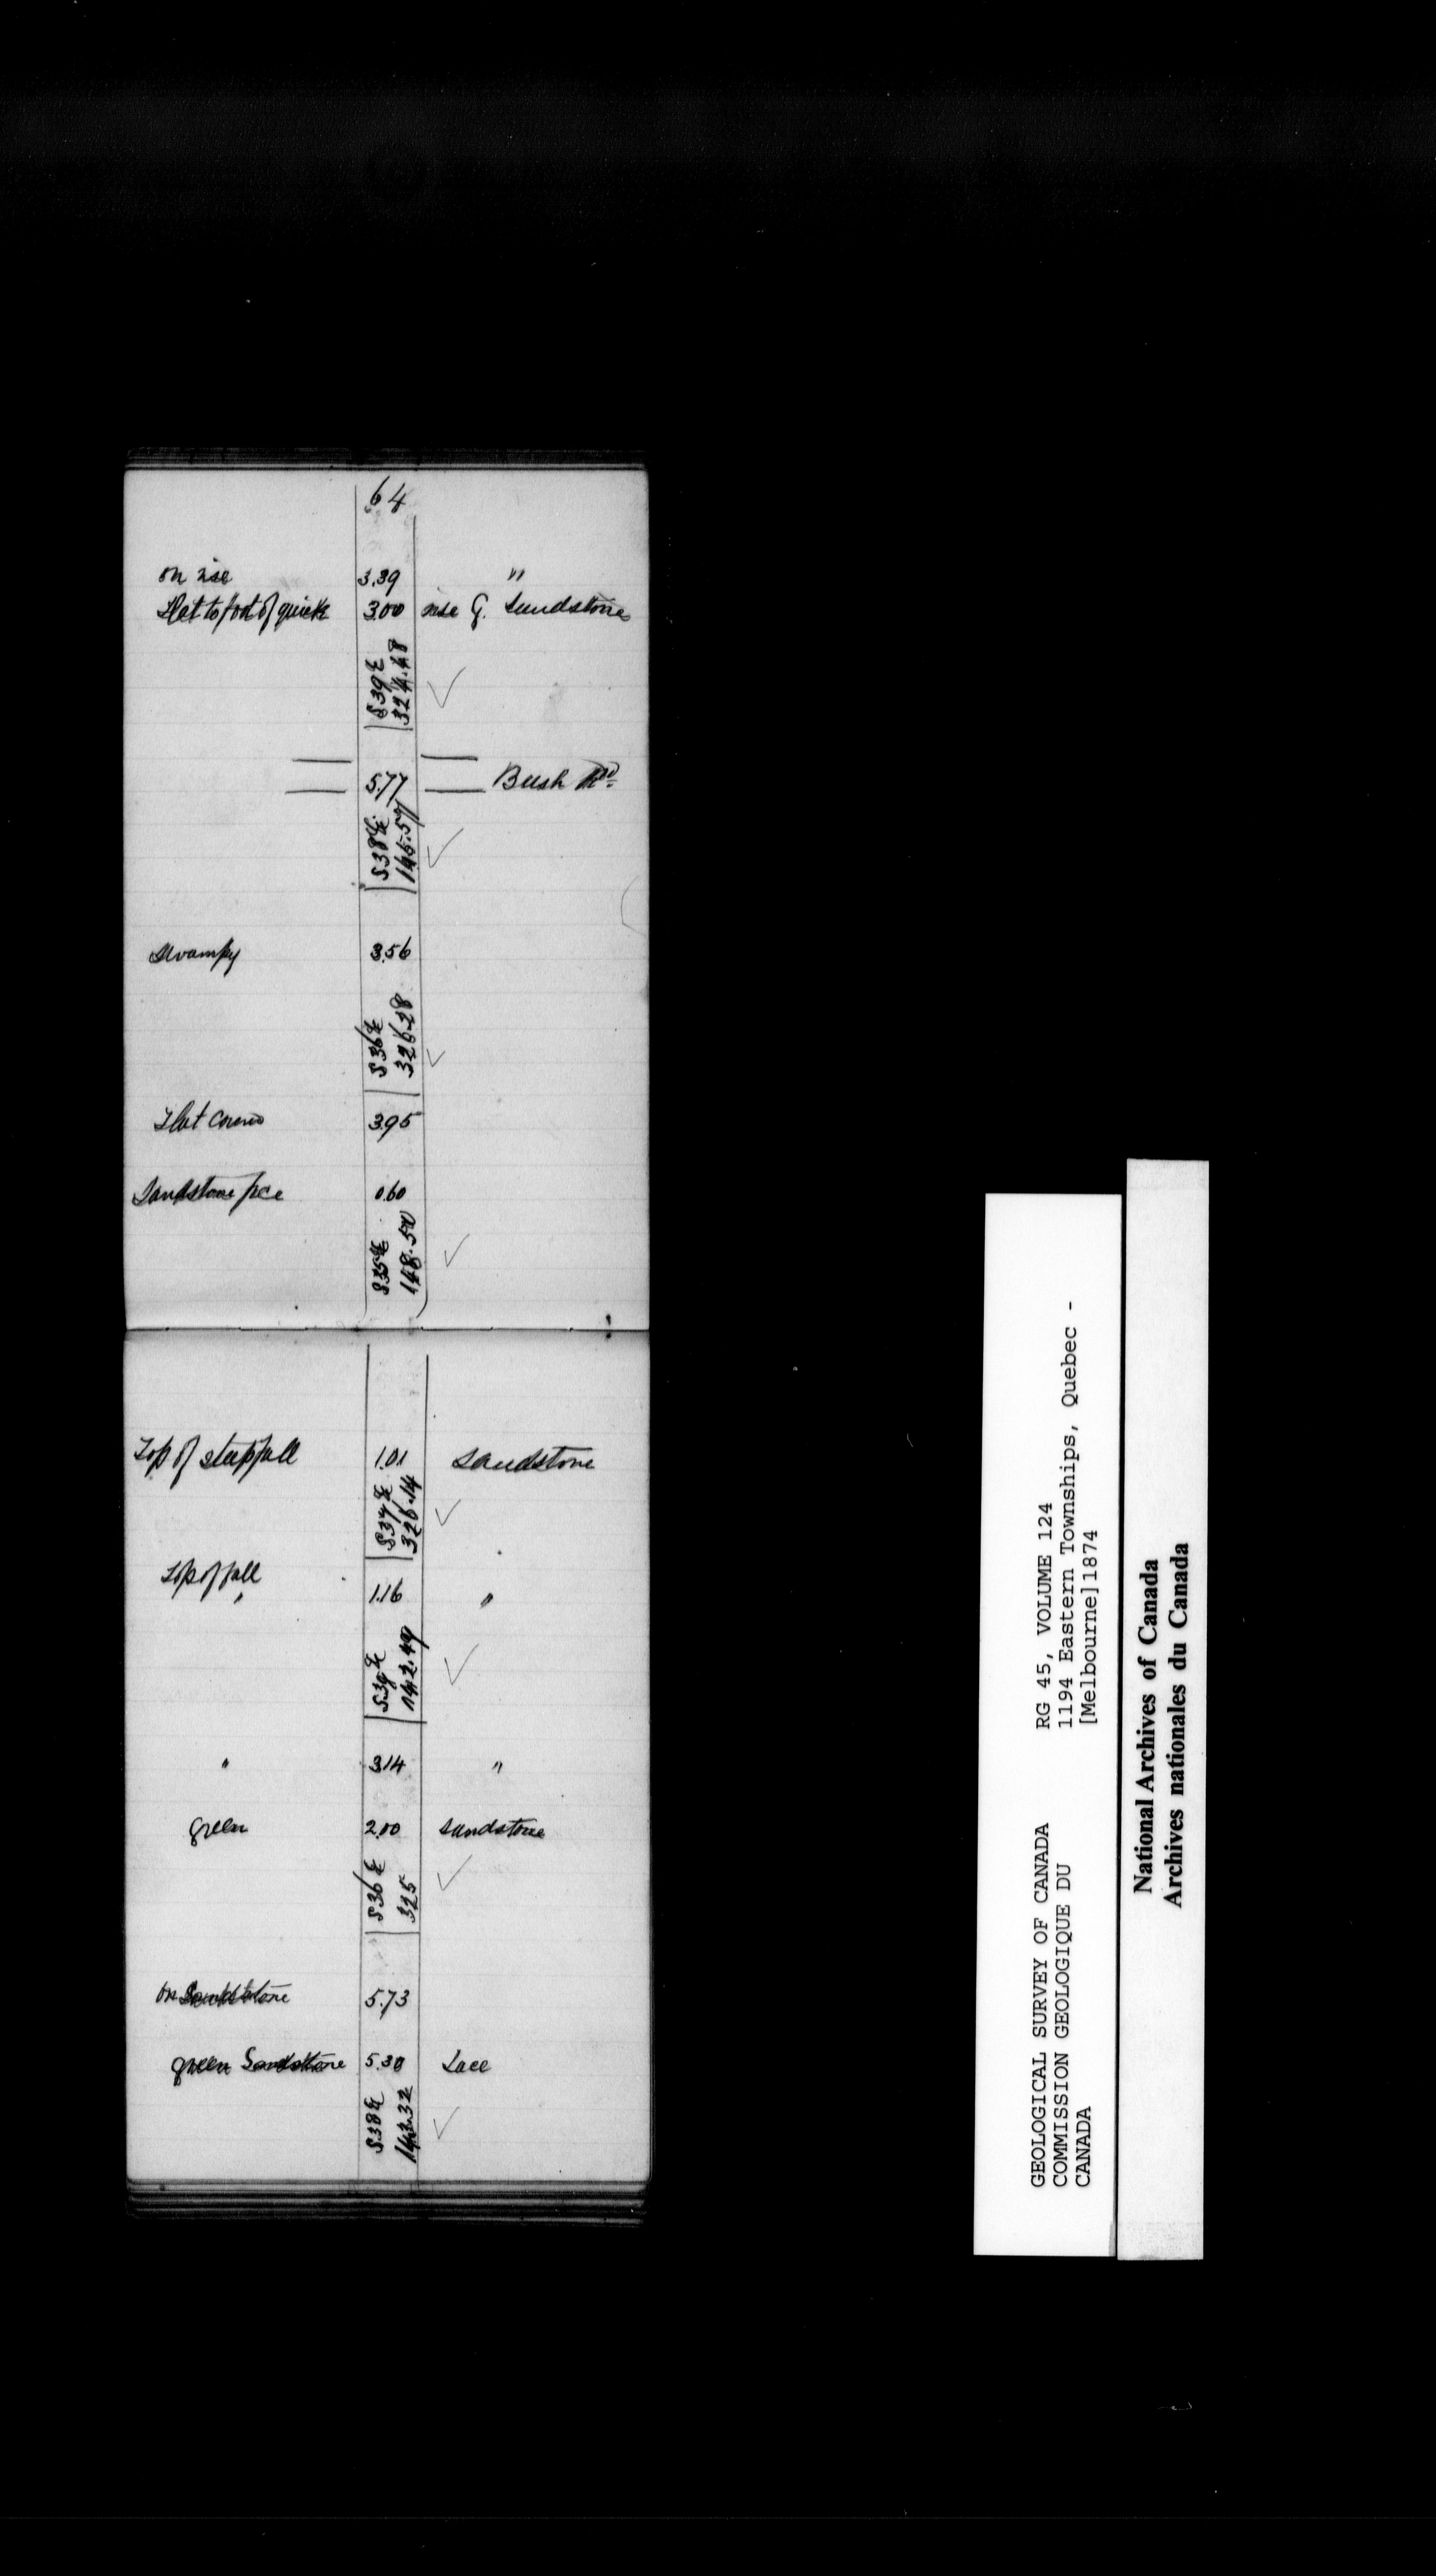 64
on rise 3.39 "
Flat to foot of quick 3.00 rise G. Sandstone
S 39 E
324.48
5.77 Bush Rd
S 38 E
145.57
Swampy 3.56
S 36 E
326.28
Flat 3.95
Sandstone pce 0.60
S 35 E
148.50
Top of steep fall 1.01 Sandstone
S 37 E
326.14
Top of fall
" 1.16 "
S 39 E
142.49
" 3.14 "
green 2.00 Sandstone
S 36 E
325
on Sandstone 5.73
green Sandstone 5.30
S 38 E
143.32
GEOLOGICAL SURVEY OF CANADA RG 45, VOLUME 124
COMMISSION GEOLOGIQUE DU 1194 Eastern Townships, Quebec -
CANADA [Melbourne]1874
National Archives of Canada
Archives nationales du Canada